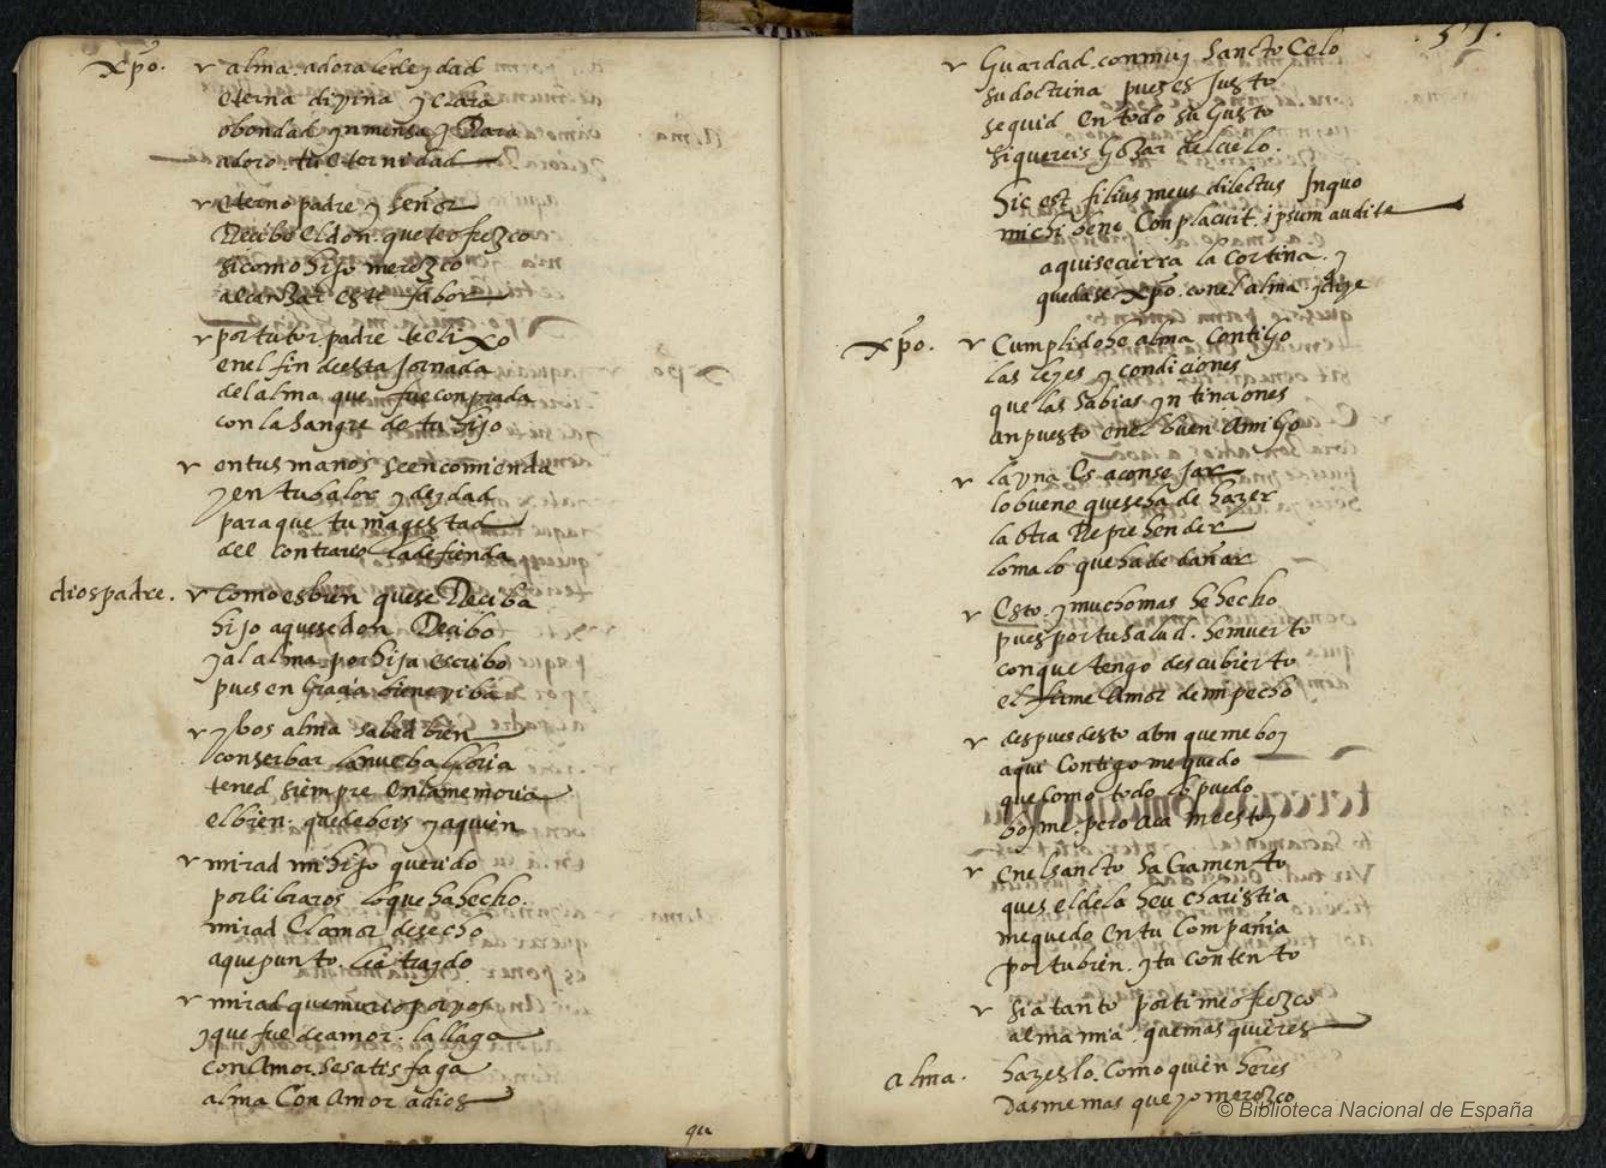 xpo. alma. adora le deydad
eterna divina y clara
o bondad ynmensa y Rara
adoro. tu eternidad
eterno padre y señor
Recibe el don. que te ofrezco
si como hijo merezco
alcanzar este fabor
por tutor. padre te elixo
en el fin de esta jornada
del alma que fue conprada
con la sangre de tu hijo
en tus manos se encomienda
y en tu balor y deydad
para que tu magestad
del contrario la defienda
dios padre. Como es bien que se Reciba
hijo aquese don Recibo
y al alma por hija escribo
pues en gracia biene viba
y bos alma sabed bien
conserbar la nueba gloria
tened siempre en la memoria
el bien. que debeis y a quien
mirad mi hijo querido
por libraros lo que ha hecho.
mirad el amor desecho
a que punto. le a traydo
mirad que murio por vos
y que fue de amor. la llaga
con amor. se satisfaga
alma con amor a dios
qu
57.
Guardad. con muy sancto Celo
su doctrina pues es justo
seguid en todo su gusto
si quereis gozar del cielo.
hic est filius meus dilectus Inquo
michi bene Conplacuit. ipsum audite
aqui se cierra la cortina. y
quedase xpo. con el alma. y dize
xpo. Cumplido he alma contigo
las leyes y condiciones
que las sabias yntinciones
an puesto en el buen amigo
la vna es aconsejar
lo bueno que se ha de hazer
la otra Reprehender
lo malo que ha de dañar
Esto. y mucho mas he hecho
pues por tu salud. he muerto
con que tengo descubierto
el firme amor de mi pecho
despues desto abn que me boy
aqui contigo me quedo
que como todo lo puedo
boyme. pero aca me estoy
en el sancto sacramento
ques el de la heucharistia
me quedo en tu compañia
por tu bien. y tu contento
si a tanto por ti me ofrezco
alma mia. que mas quieres
alma. hazeslo. como quien heres
dasme mas que yo merezco
© Biblioteca Nacional de España